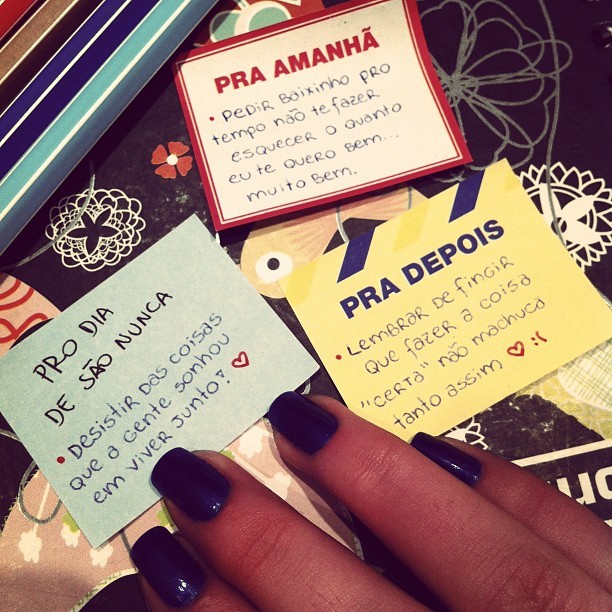 PRA AMANHÃ
• PEDIR BAIXINHO PRO
TEMPO NÃO TE FAZER
ESQUECER O QUANTO
EU TE QUERO BEM...
MUITO BEM.
PRA DEPOIS
• LEMBRAR DE FINGIR
QUE FAZER A COISA
"CERTA" NÃO MACHUCA
TANTO ASSIM ♡ :(
PRO DIA
DE SÃO NUNCA
• DESISTIR DAS COISAS
QUE A GENTE SONHOU
EM VIVER JUNTO! ♡